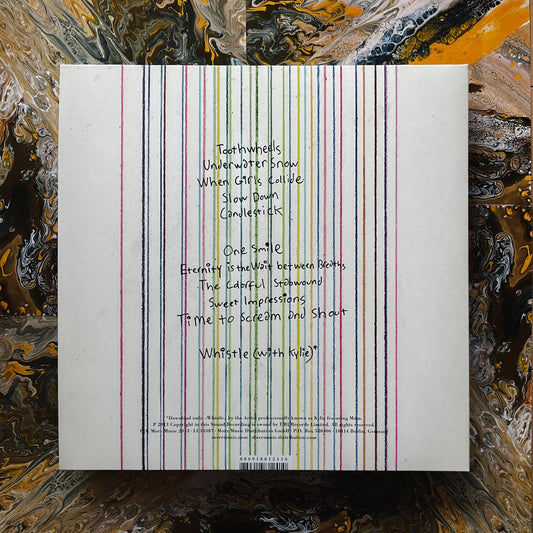 Toothwheels
Underwater Snow
When Girls Collide
Slow Down
Candlestick
One Smile
Eternity is the Wait between Breaths
The Colorful Stabwound
Sweet Impressions
Time to Scream and Shout
Whistle (with Kylie)*
*Download only. »Whistle« by the Artist professionally known as Kylie featuring Múm.
P 2013 Copyright in this Sound Recording is owned by EMI Records Limited. All rights reserved.
P.C. Morr Music 2013 · LC 10387 Morr Music Distribution GmbH · P.O. Box 550406 · 10414 Berlin, Germany
morrmusic.com ·